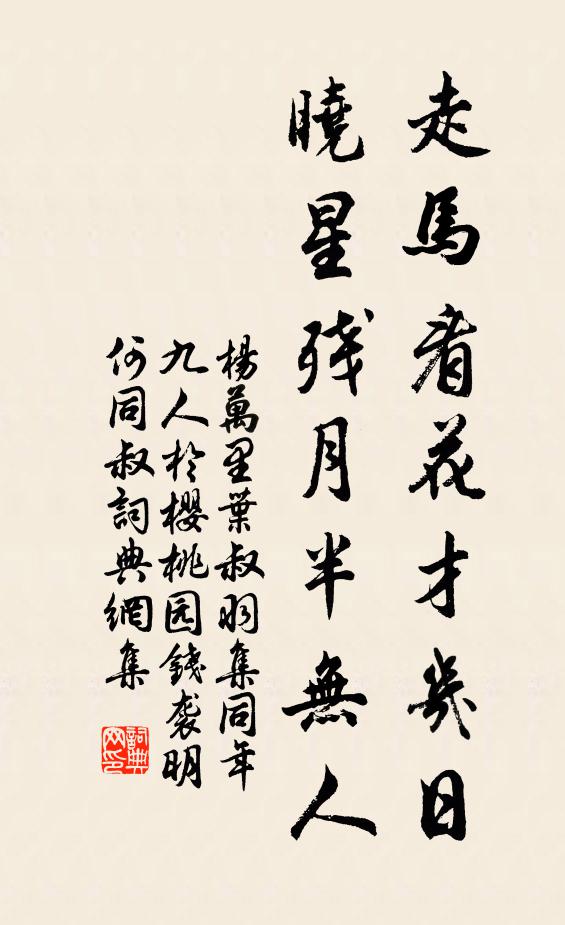 走馬看花才幾日
曉星残月半無人
楊萬里葉叔羽集同年
九人於櫻桃园錢袭明
何同叔詞典網集
詞典
网印